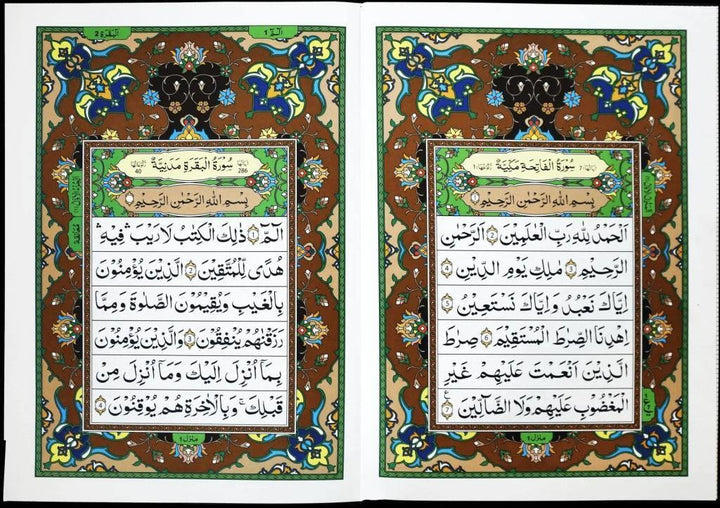 سُوْرَةُ الْفَاتِحَةِ مَكِّيَّةٌ
بِسْمِ اللّٰهِ الرَّحْمٰنِ الرَّحِيْمِ
اَلْحَمْدُ لِلّٰهِ رَبِّ الْعٰلَمِيْنَ ﴿2﴾ الرَّحْمٰنِ
الرَّحِيْمِ ﴿3﴾ مٰلِكِ يَوْمِ الدِّيْنِ ﴿4﴾
اِيَّاكَ نَعْبُدُ وَاِيَّاكَ نَسْتَعِيْنُ ﴿5﴾
اِهْدِنَا الصِّرَاطَ الْمُسْتَقِيْمَ ﴿6﴾ صِرَاطَ
الَّذِيْنَ اَنْعَمْتَ عَلَيْهِمْ غَيْرِ
الْمَغْضُوْبِ عَلَيْهِمْ وَلَا الضَّآلِّيْنَ ﴿7﴾
منزل ١
البقرة 2
الٓمّٓ 1
سُوْرَةُ الْبَقَرَةِ مَدَنِيَّةٌ
286
40
بِسْمِ اللّٰهِ الرَّحْمٰنِ الرَّحِيْمِ
الٓمّٓ ﴿1﴾ ذٰلِكَ الْكِتٰبُ لَا رَيْبَ ۛ فِيْهِ ۛ
هُدًى لِّلْمُتَّقِيْنَ ﴿2﴾ الَّذِيْنَ يُؤْمِنُوْنَ
بِالْغَيْبِ وَيُقِيْمُوْنَ الصَّلٰوةَ وَمِمَّا
رَزَقْنٰهُمْ يُنْفِقُوْنَ ﴿3﴾ وَالَّذِيْنَ يُؤْمِنُوْنَ
بِمَآ اُنْزِلَ اِلَيْكَ وَمَآ اُنْزِلَ مِنْ
قَبْلِكَ ۚ وَبِالْاٰخِرَةِ هُمْ يُوْقِنُوْنَ ﴿4﴾
منزل ١